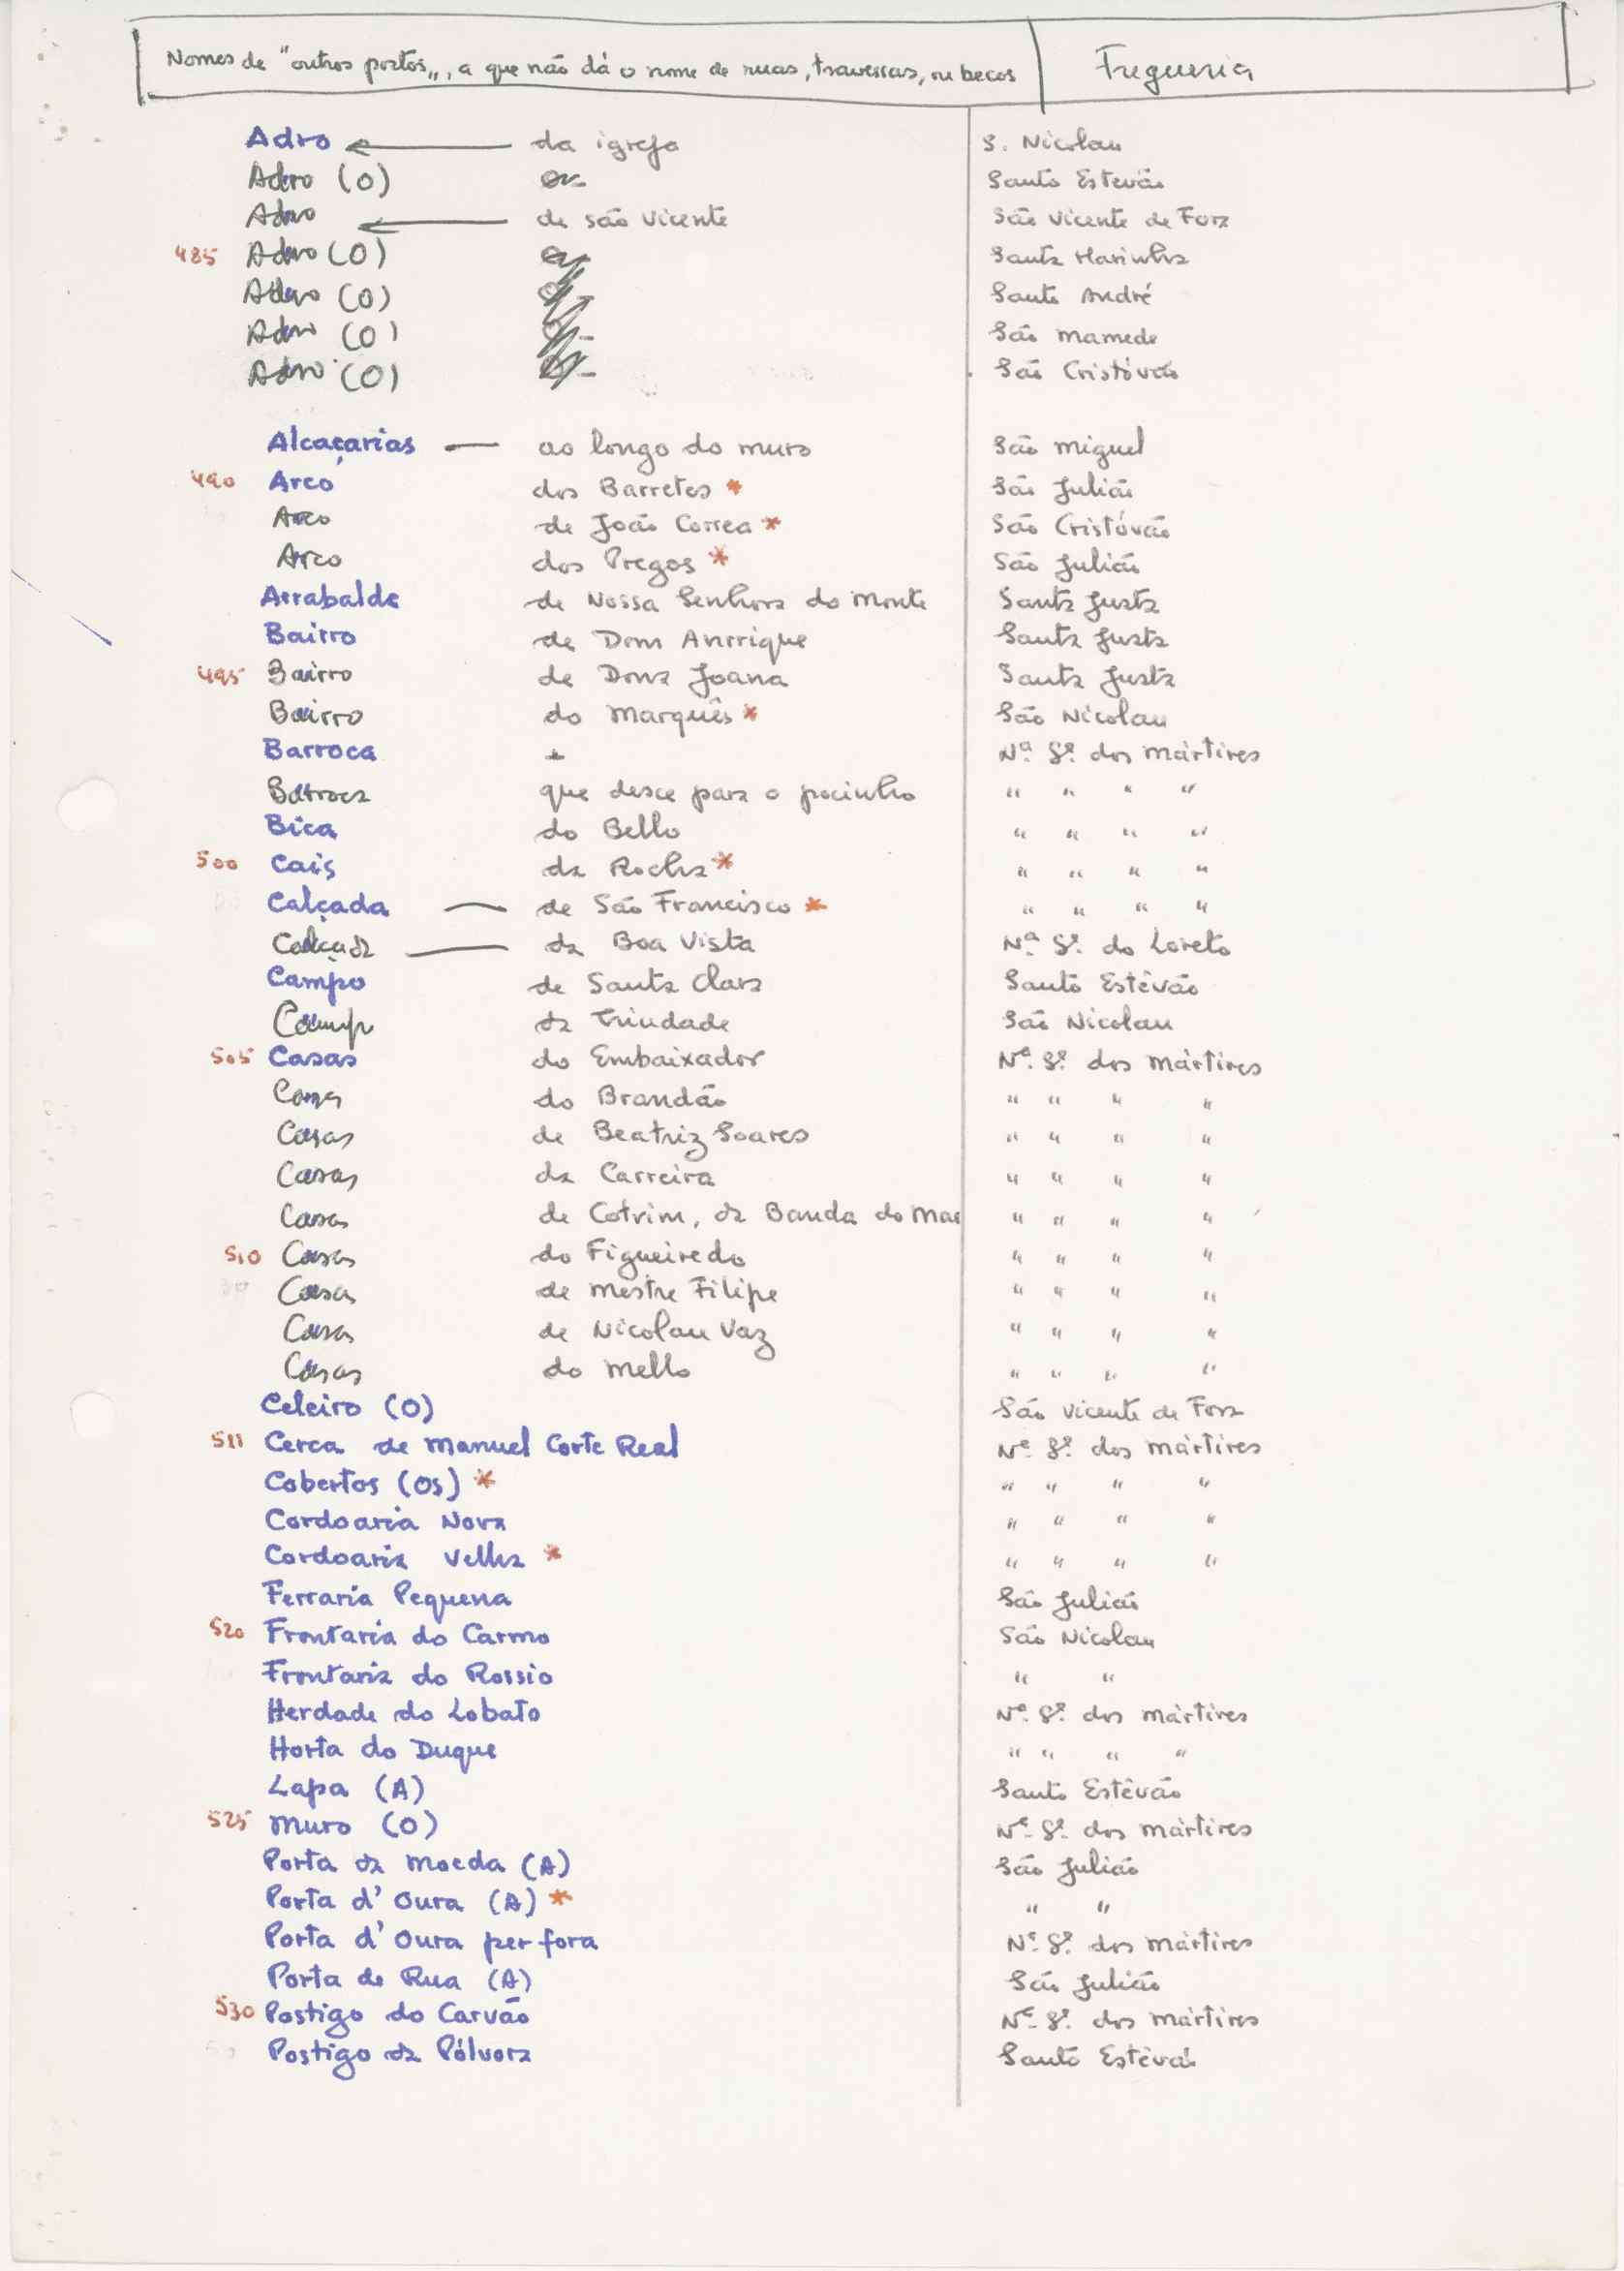 Nomes de "outros postos", a que não dá o nome de ruas, travessas, ou becos Freguesia
Adro da igreja S. Nicolau
Adro (O) Santo Estevão
Adro de São Vicente São Vicente de Fora
485 Adro (O) Santa Marinha
Adro (O) Santo André
Adro (O) São Mamede
Adro (O) São Cristóvão
Alcaçarias — ao longo do muro São Miguel
490 Arco dos Barretes * São Julião
Arco de João Correa * São Cristóvão
Arco dos Pregos * São Julião
Arrabalde de Nossa Senhora do Monte Santa Justa
Bairro de Dom Anrrique Santa Justa
495 Bairro de Dona Joana Santa Justa
Bairro do Marquês * São Nicolau
Barroca Nª Sª dos Mártires
Barroca que desce para o pocinho " " " "
Bica do Bello " " " "
500 Cais da Rocha * " " " "
Calçada — de São Francisco * " " " "
Calçada — da Boa Vista Nª Sª do Loreto
Campo de Santa Clara Santo Estêvão
Campo da Trindade São Nicolau
505 Casas do Embaixador Nª Sª dos Mártires
Casas do Brandão " " " "
Casas de Beatriz Soares " " " "
Casas da Carreira " " " "
Casas de Cotrim, da Banda do Mar " " " "
510 Casas do Figueiredo " " " "
Casas de Mestre Filipe " " " "
Casas de Nicolau Vaz " " " "
Casas do Mello " " " "
Celeiro (O) São Vicente de Fora
511 Cerca de Manuel Corte Real Nª Sª dos Mártires
Cobertos (Os) * " " " "
Cordoaria Nova " " " "
Cordoaria Velha * " " " "
Ferraria Pequena São Julião
520 Frontaria do Carmo São Nicolau
Frontaria do Rossio " "
Herdade do Lobato Nª Sª dos Mártires
Horta do Duque " " " "
Lapa (A) Santo Estêvão
525 Muro (O) Nª Sª dos Mártires
Porta da Moeda (A) São Julião
Porta d'Oura (A) * " "
Porta d'Oura per fora Nª Sª dos Mártires
Porta de Rua (A) São Julião
530 Postigo do Carvão Nª Sª dos Mártires
Postigo da Pólvora Santo Estêvão